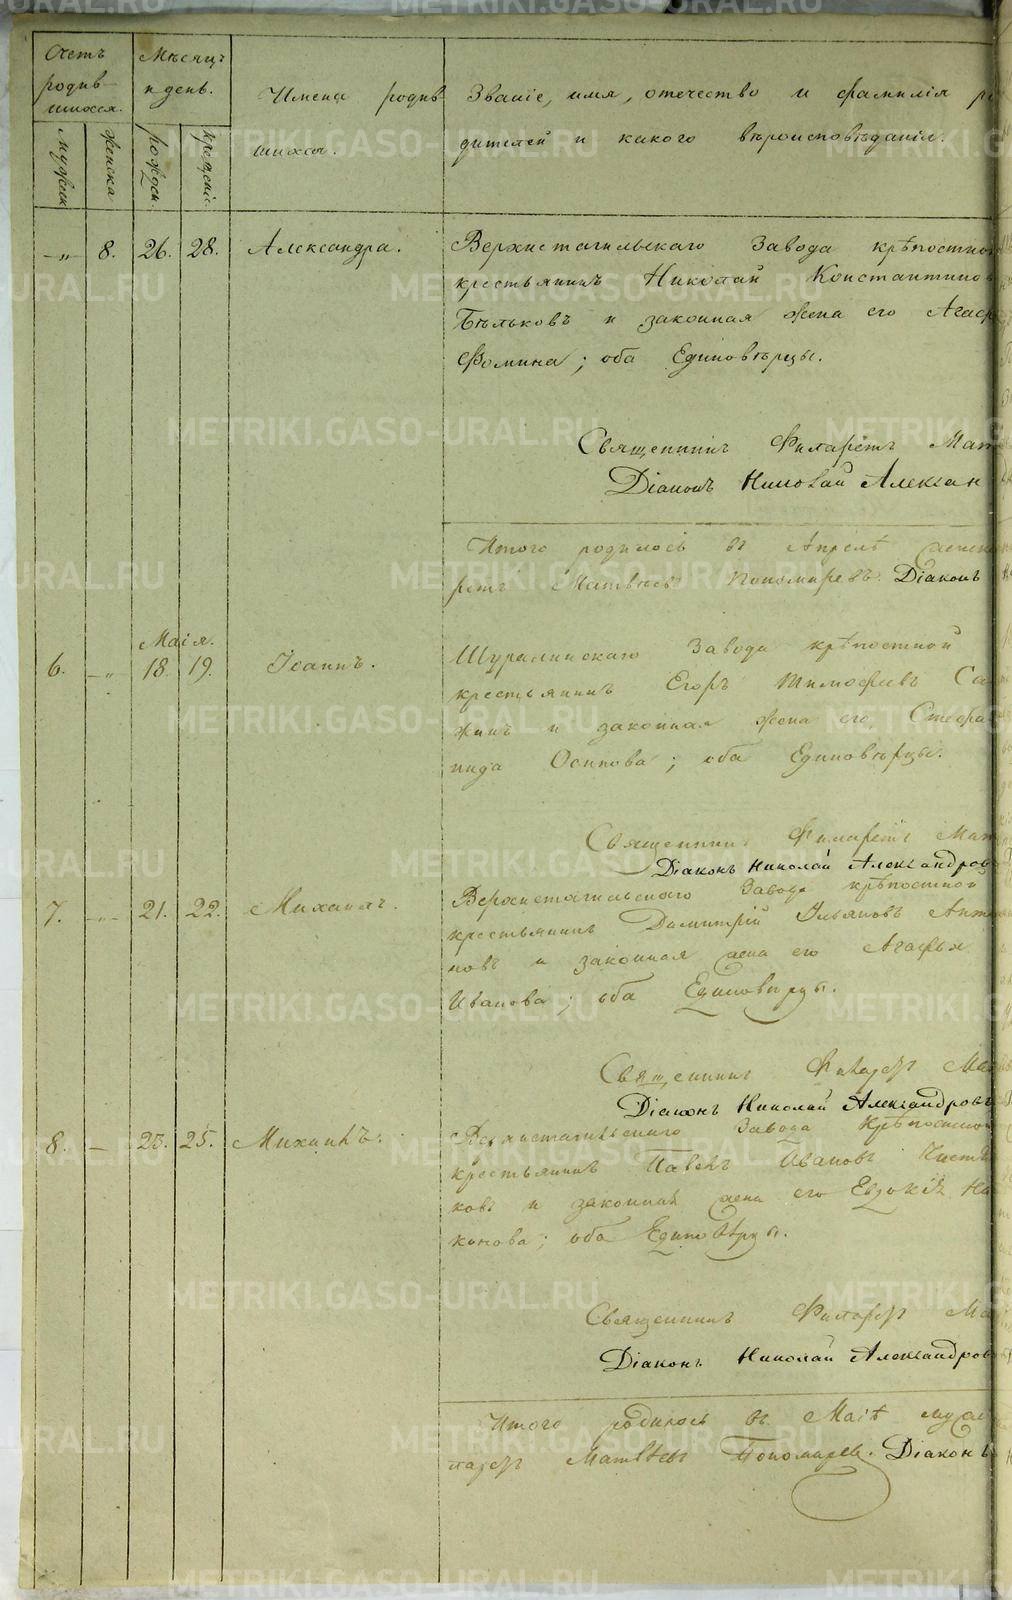 Счетъ
родив-
шихся.
Мѣсяцъ
и день.
Имена родив
шихся.
Званіе, имя, отечество и фамилія ро
дителей и какого вѣроисповѣданія.
мужеск
женска
рожден.
крещеніе.
-„- 8. 26. 28. Александра. Верхнетагильскаго Завода крѣпостной
крестьянинъ Николай Константинов
Бѣльковъ и законная жена его Агаф
Фомина; оба Единовѣрцы.
Священникъ Филаретъ Мат
Діаконъ Николай Алексан
Итого родилось въ Апрѣлѣ женск
ретъ Матвѣевъ Пономаревъ. Діаконъ
Маія.
6. -„- 18. 19. Іоаннъ. Шуралинскаго Завода крѣпостной
крестьянинъ Егоръ Тимофеевъ Са
жинъ и законная жена его Стефа
нида Осипова; оба Единовѣрцы.
Священникъ Филаретъ Мат
Діаконъ Николай Александров
7. -„- 21. 22. Михаилъ. Верхнетагильскаго Завода крѣпостной
крестьянинъ Димитрій Ульяновъ Анто
новъ и законная жена его Агафья
Иванова; оба Единовѣрцы.
Священникъ Филаретъ Мат
Діаконъ Николай Александровъ
8. - 23. 25. Михаилъ. Верхнетагильскаго Завода крѣпостной
крестьянинъ Павелъ Ивановъ Чистя
ковъ и законная жена его Евдокія Ни
конова; оба Единовѣрцы.
Священникъ Филаретъ Ма
Діаконъ Николай Александров
Итого родилось въ Маіѣ муж
ларетъ Матвѣевъ Пономаревъ. Діаконъ
METRIKI.GASO-URAL.RU